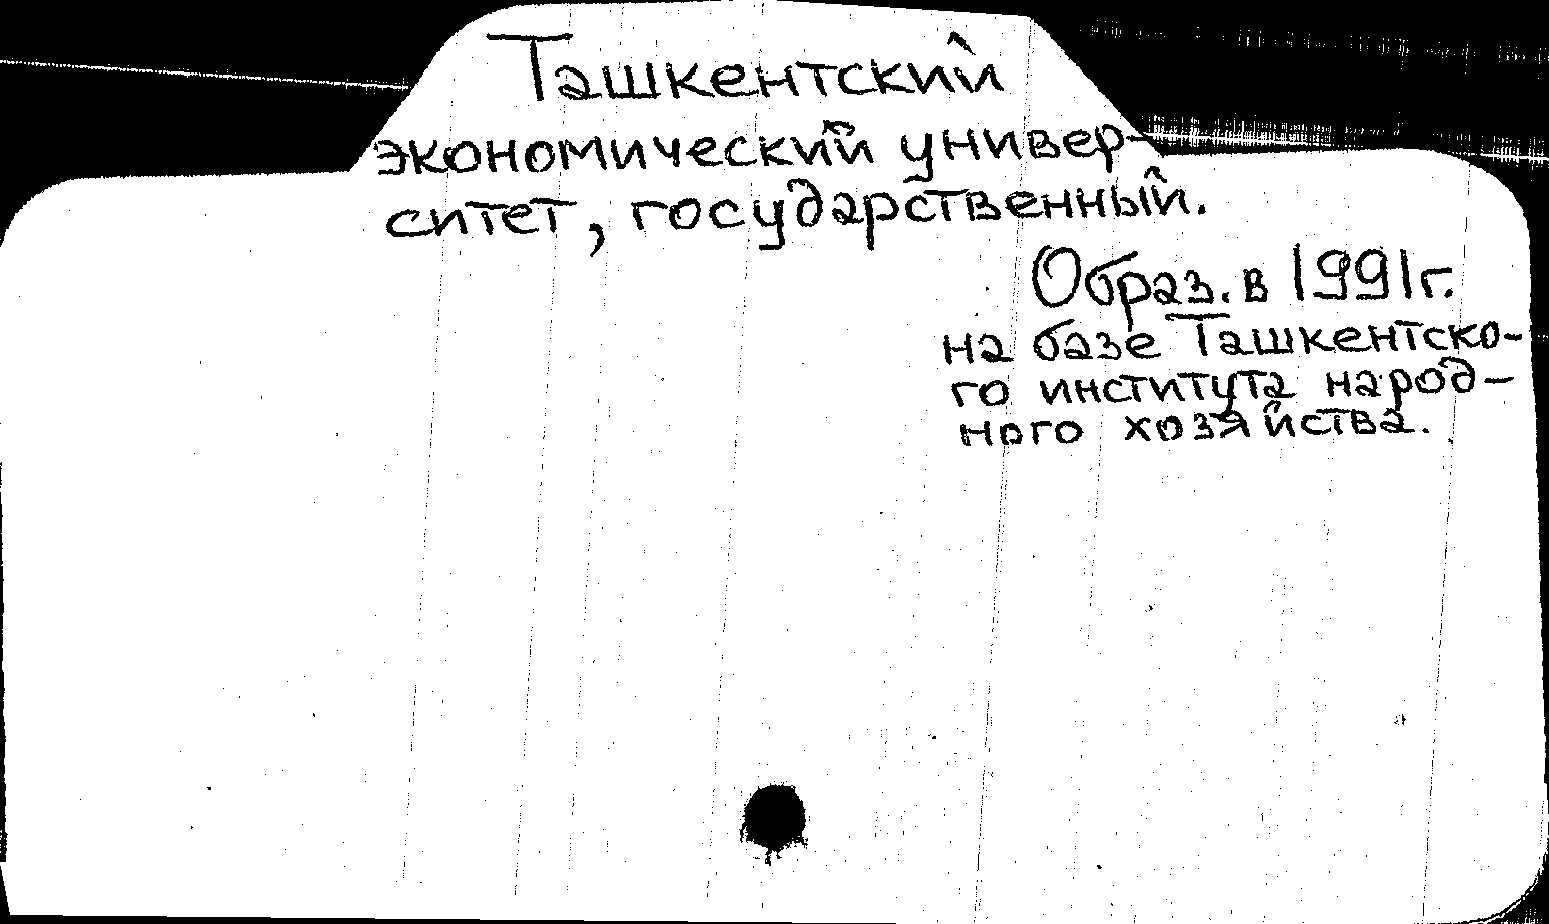 Ташкентский
экономический универ-
ситет, государственный.
Образ. в 1991г.
на базе Ташкентско-
го института народ-
ного хозяйства.